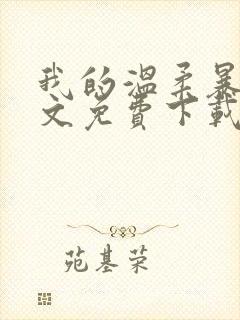 我的温柔暴
文免费下载
苑基荣